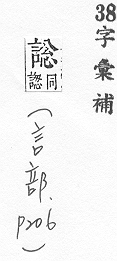 38字彙補
同
(言部. p206)